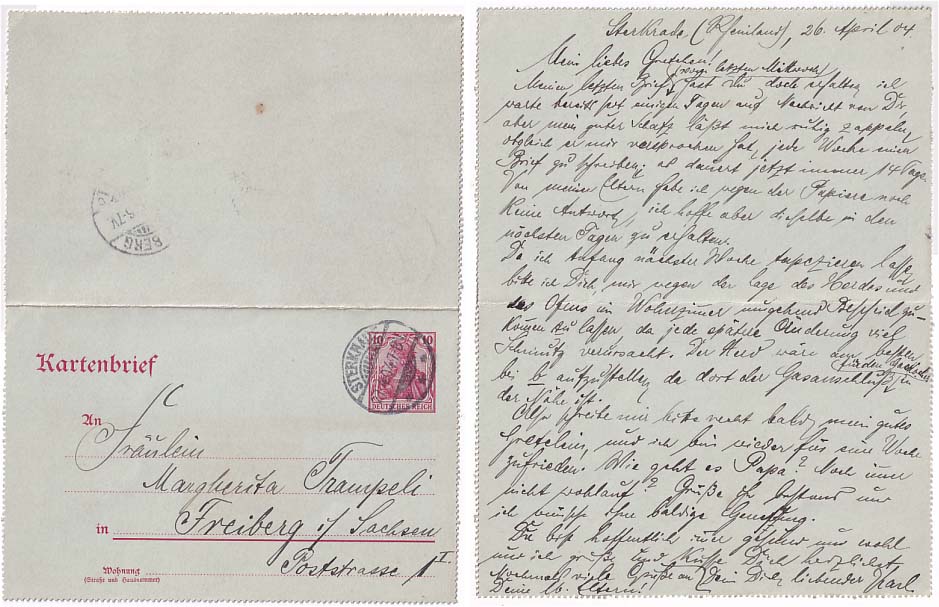 BERG
Kartenbrief
10 10
DEUTSCHES REICH
STERKRADE
An
Fräulein
Margherita Trampeli
in Freiberg i/ Sachsen
Wohnung Poststrasse 1 I
(Straße und Hausnummer)
Sterkrade, (Rheinland), 26. April 04
Mein liebes Gretchen!
(vorig. letzten Mittwoch)
Meinen letzten Brief hast Du doch erhalten, ich
warte bereits seit einigen Tagen auf Nachricht von Dir,
aber mein guter Schatz läßt mich ruhig zappeln,
obgleich er mir versprochen hat, jede Woche einen
Brief zu schreiben; es dauert jetzt immer 14 Tage.
Von meinen Eltern habe ich wegen der Papiere noch
keine Antwort, ich hoffe aber dieselbe in den
nächsten Tagen zu erhalten.
Da ich Anfang nächster Woche tapezieren lasse,
bitte ich Dich, mir wegen der Lage des Herdes und
des Ofens im Wohnzimmer umgehend Bescheid zu-
kommen zu lassen, da jede spätere Änderung viel
Schmutz verursacht. Der Herd wäre am besten
bei b aufzustellen, da dort der Gasanschluß in
der Nähe ist.
Also schreibe mir bitte recht bald, mein gutes
Gretelein, und ich bin wieder für eine Woche
zufrieden. Wie geht es Papa? Noch immer
nicht wohlauf? Grüße ihn bestens und
ich wünsche ihm baldige Genesung.
Du bist hoffentlich gesund und wohl
und ich grüße und küsse Dich herzlichst
Nochmals viele Grüße an Dein Dich liebender Karl
Deine lb. Eltern!